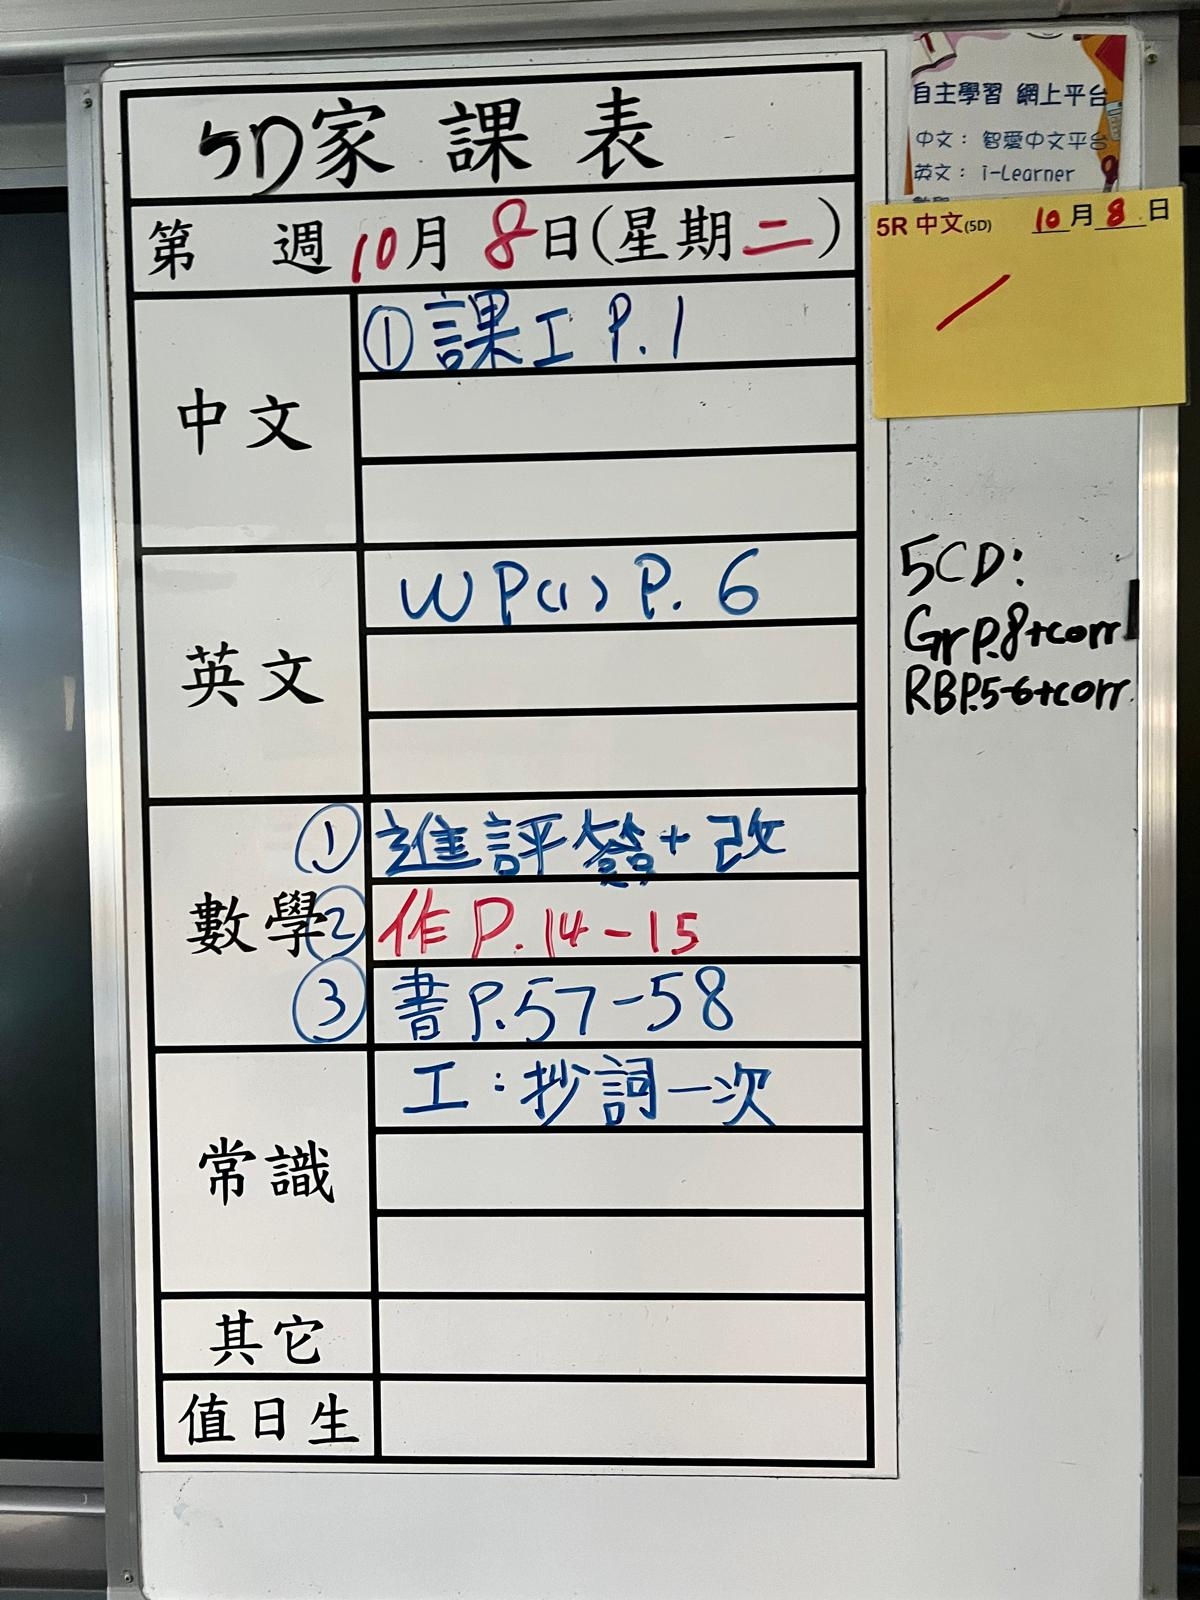 5D家課表
第 週10月8日(星期二)
中文
①課工 P.1
英文
WP(1) P.6
數學
①進評簽+改
②作P.14-15
③書P.57-58
常識
工:抄詞一次
其它
值日生
自主學習 網上平台
中文: 智愛中文平台
英文: i-Learner
5R 中文(5D) 10月8日
5CD:
Gr P.8+corr
RB P.5-6+corr.